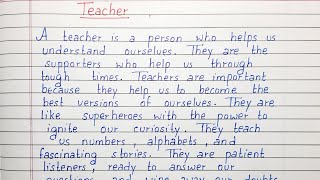 Teacher
A teacher is a person who helps us
understand ourselves. They are the
supporters who help us through
tough times. Teachers are important
because they help us to become the
best versions of ourselves. They are
like superheroes with the power to
ignite our curiosity. They teach
us numbers, alphabets, and
fascinating stories. They are patient
listeners, ready to answer our
questions and wipe away our doubts